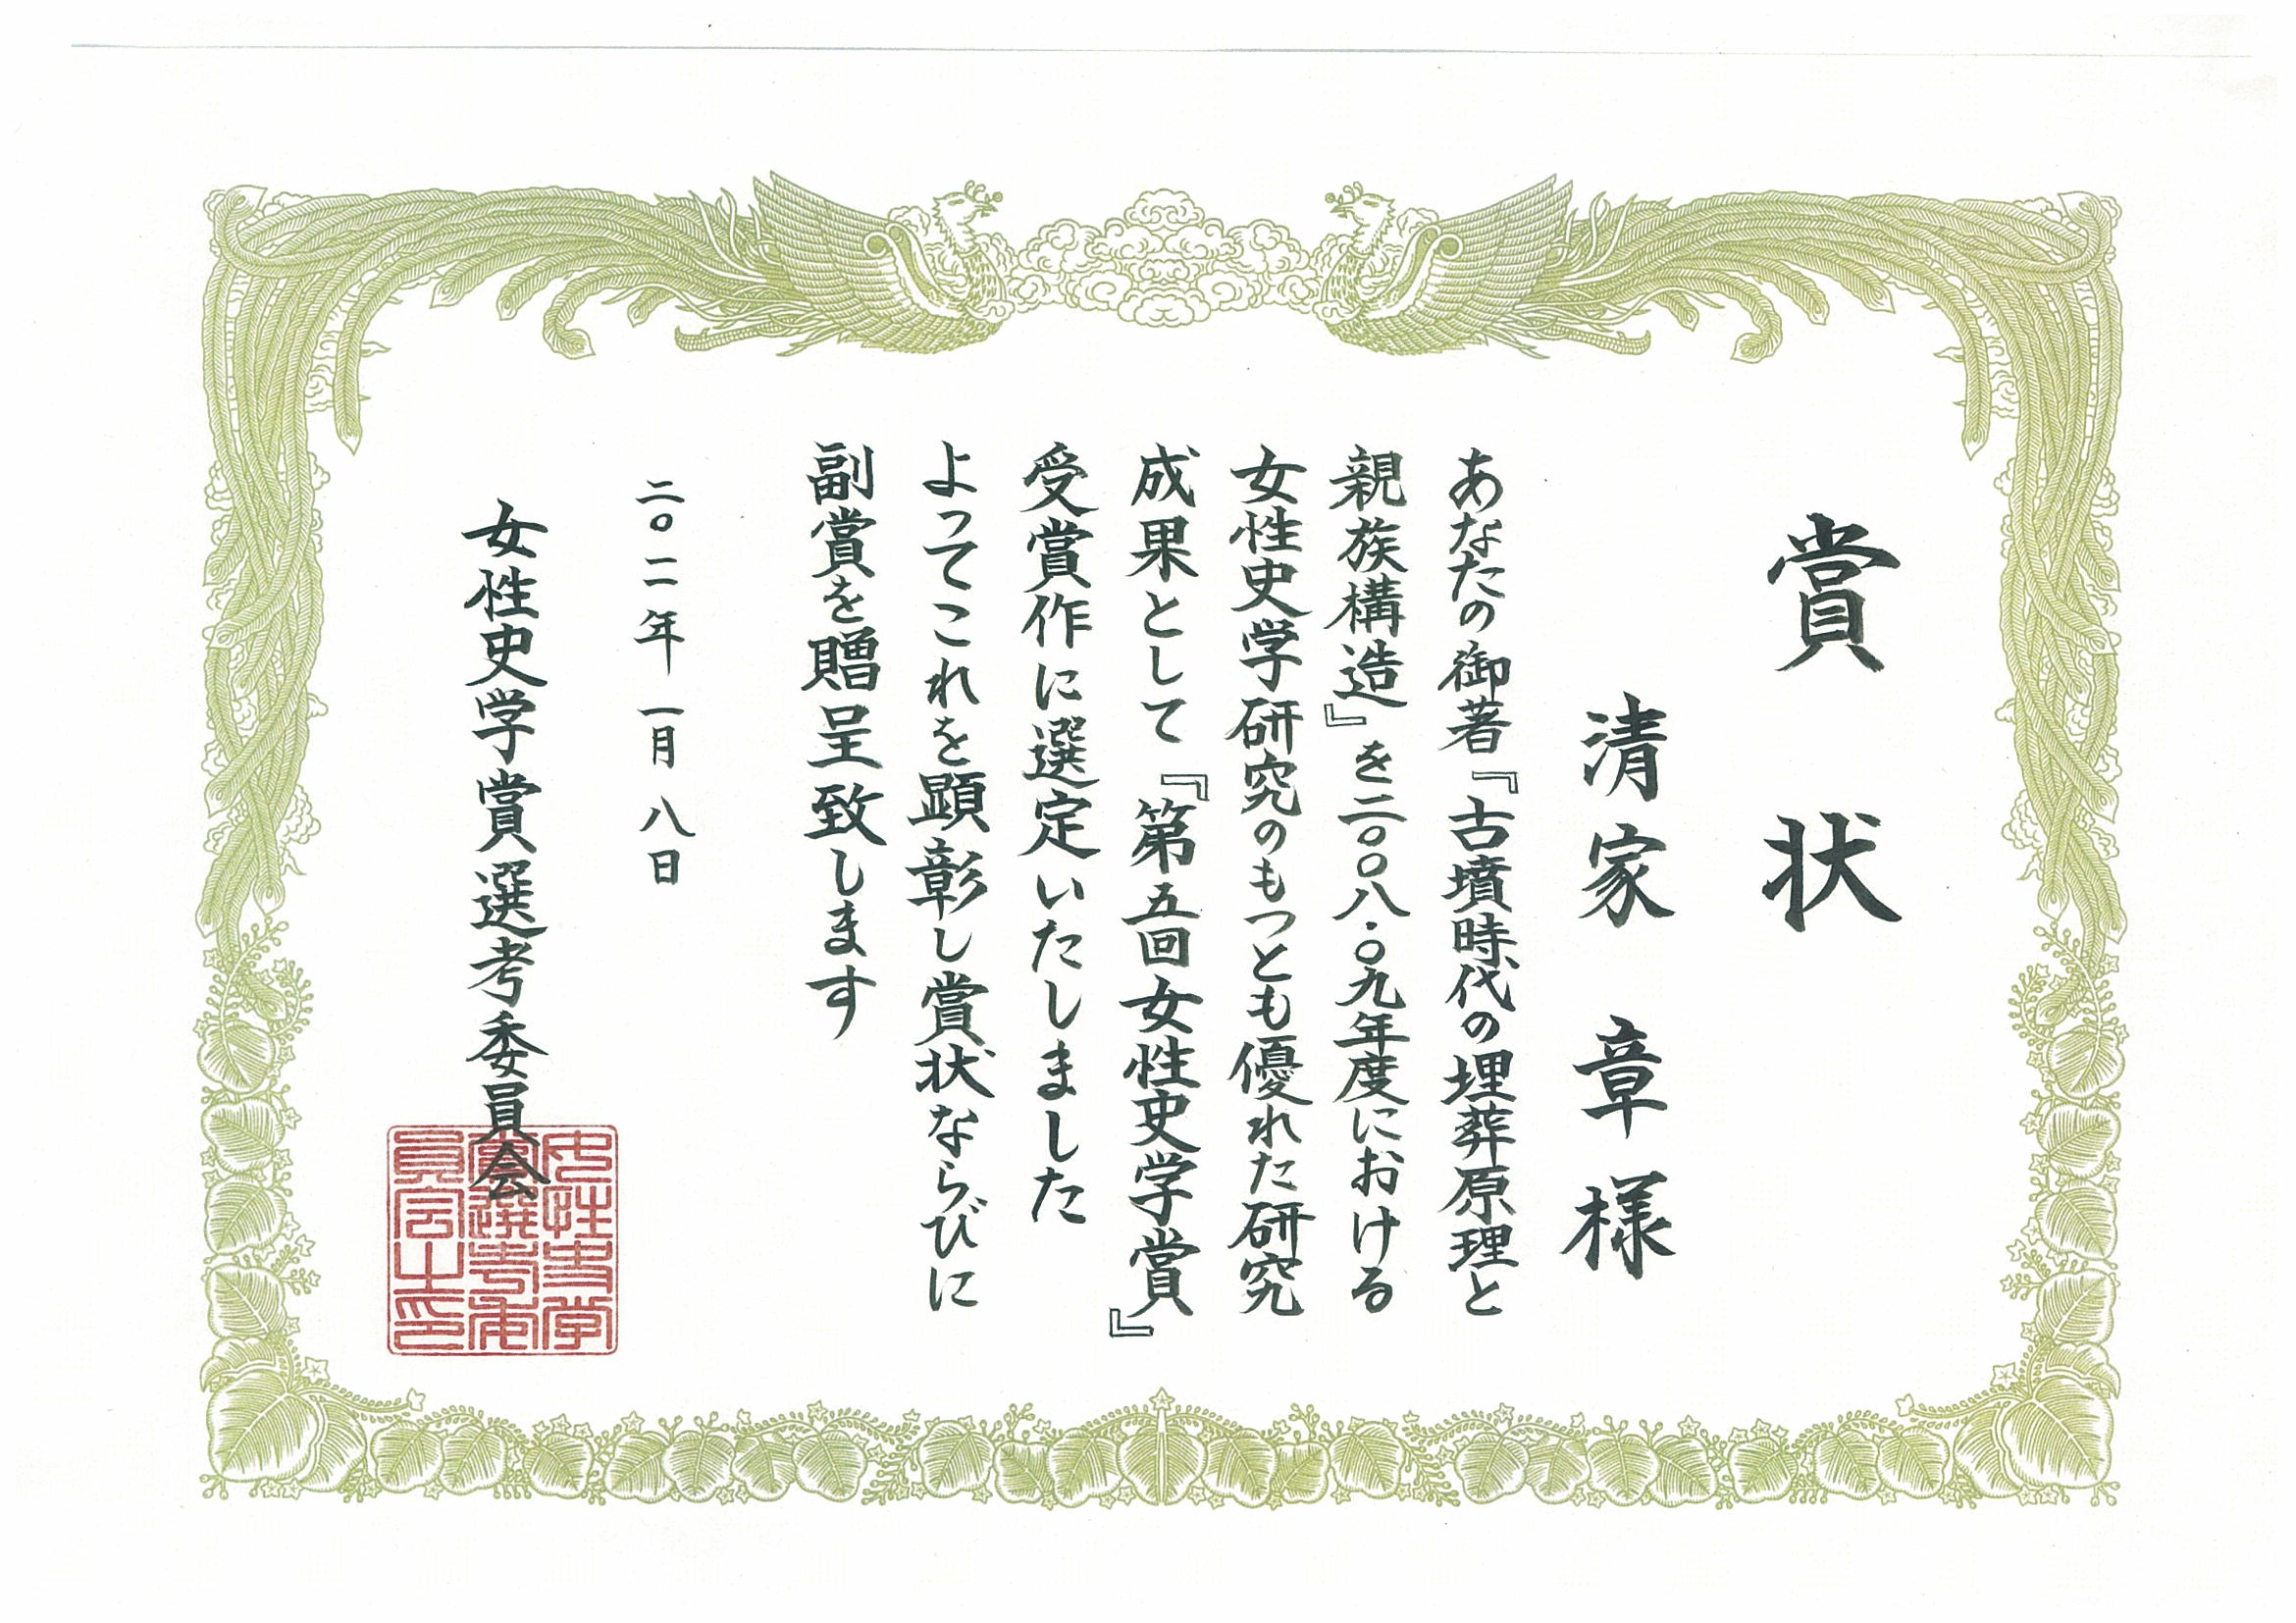 賞状
清家 章 様
あなたの御著『古墳時代の埋葬原理と
親族構造』を二〇〇八・〇九年度における
女性史学研究のもっとも優れた研究
成果として『第五回女性史学賞』
受賞作に選定いたしました
よってこれを顕彰し賞状ならびに
副賞を贈呈致します
二〇一一年一月八日
女性史学賞選考委員会
女性史学
賞選考委
員会之印